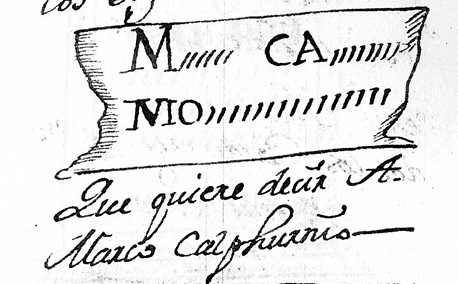 los
M///// CA///////
MO///////////////
Que quiere decir A.
Marco Calphurnio